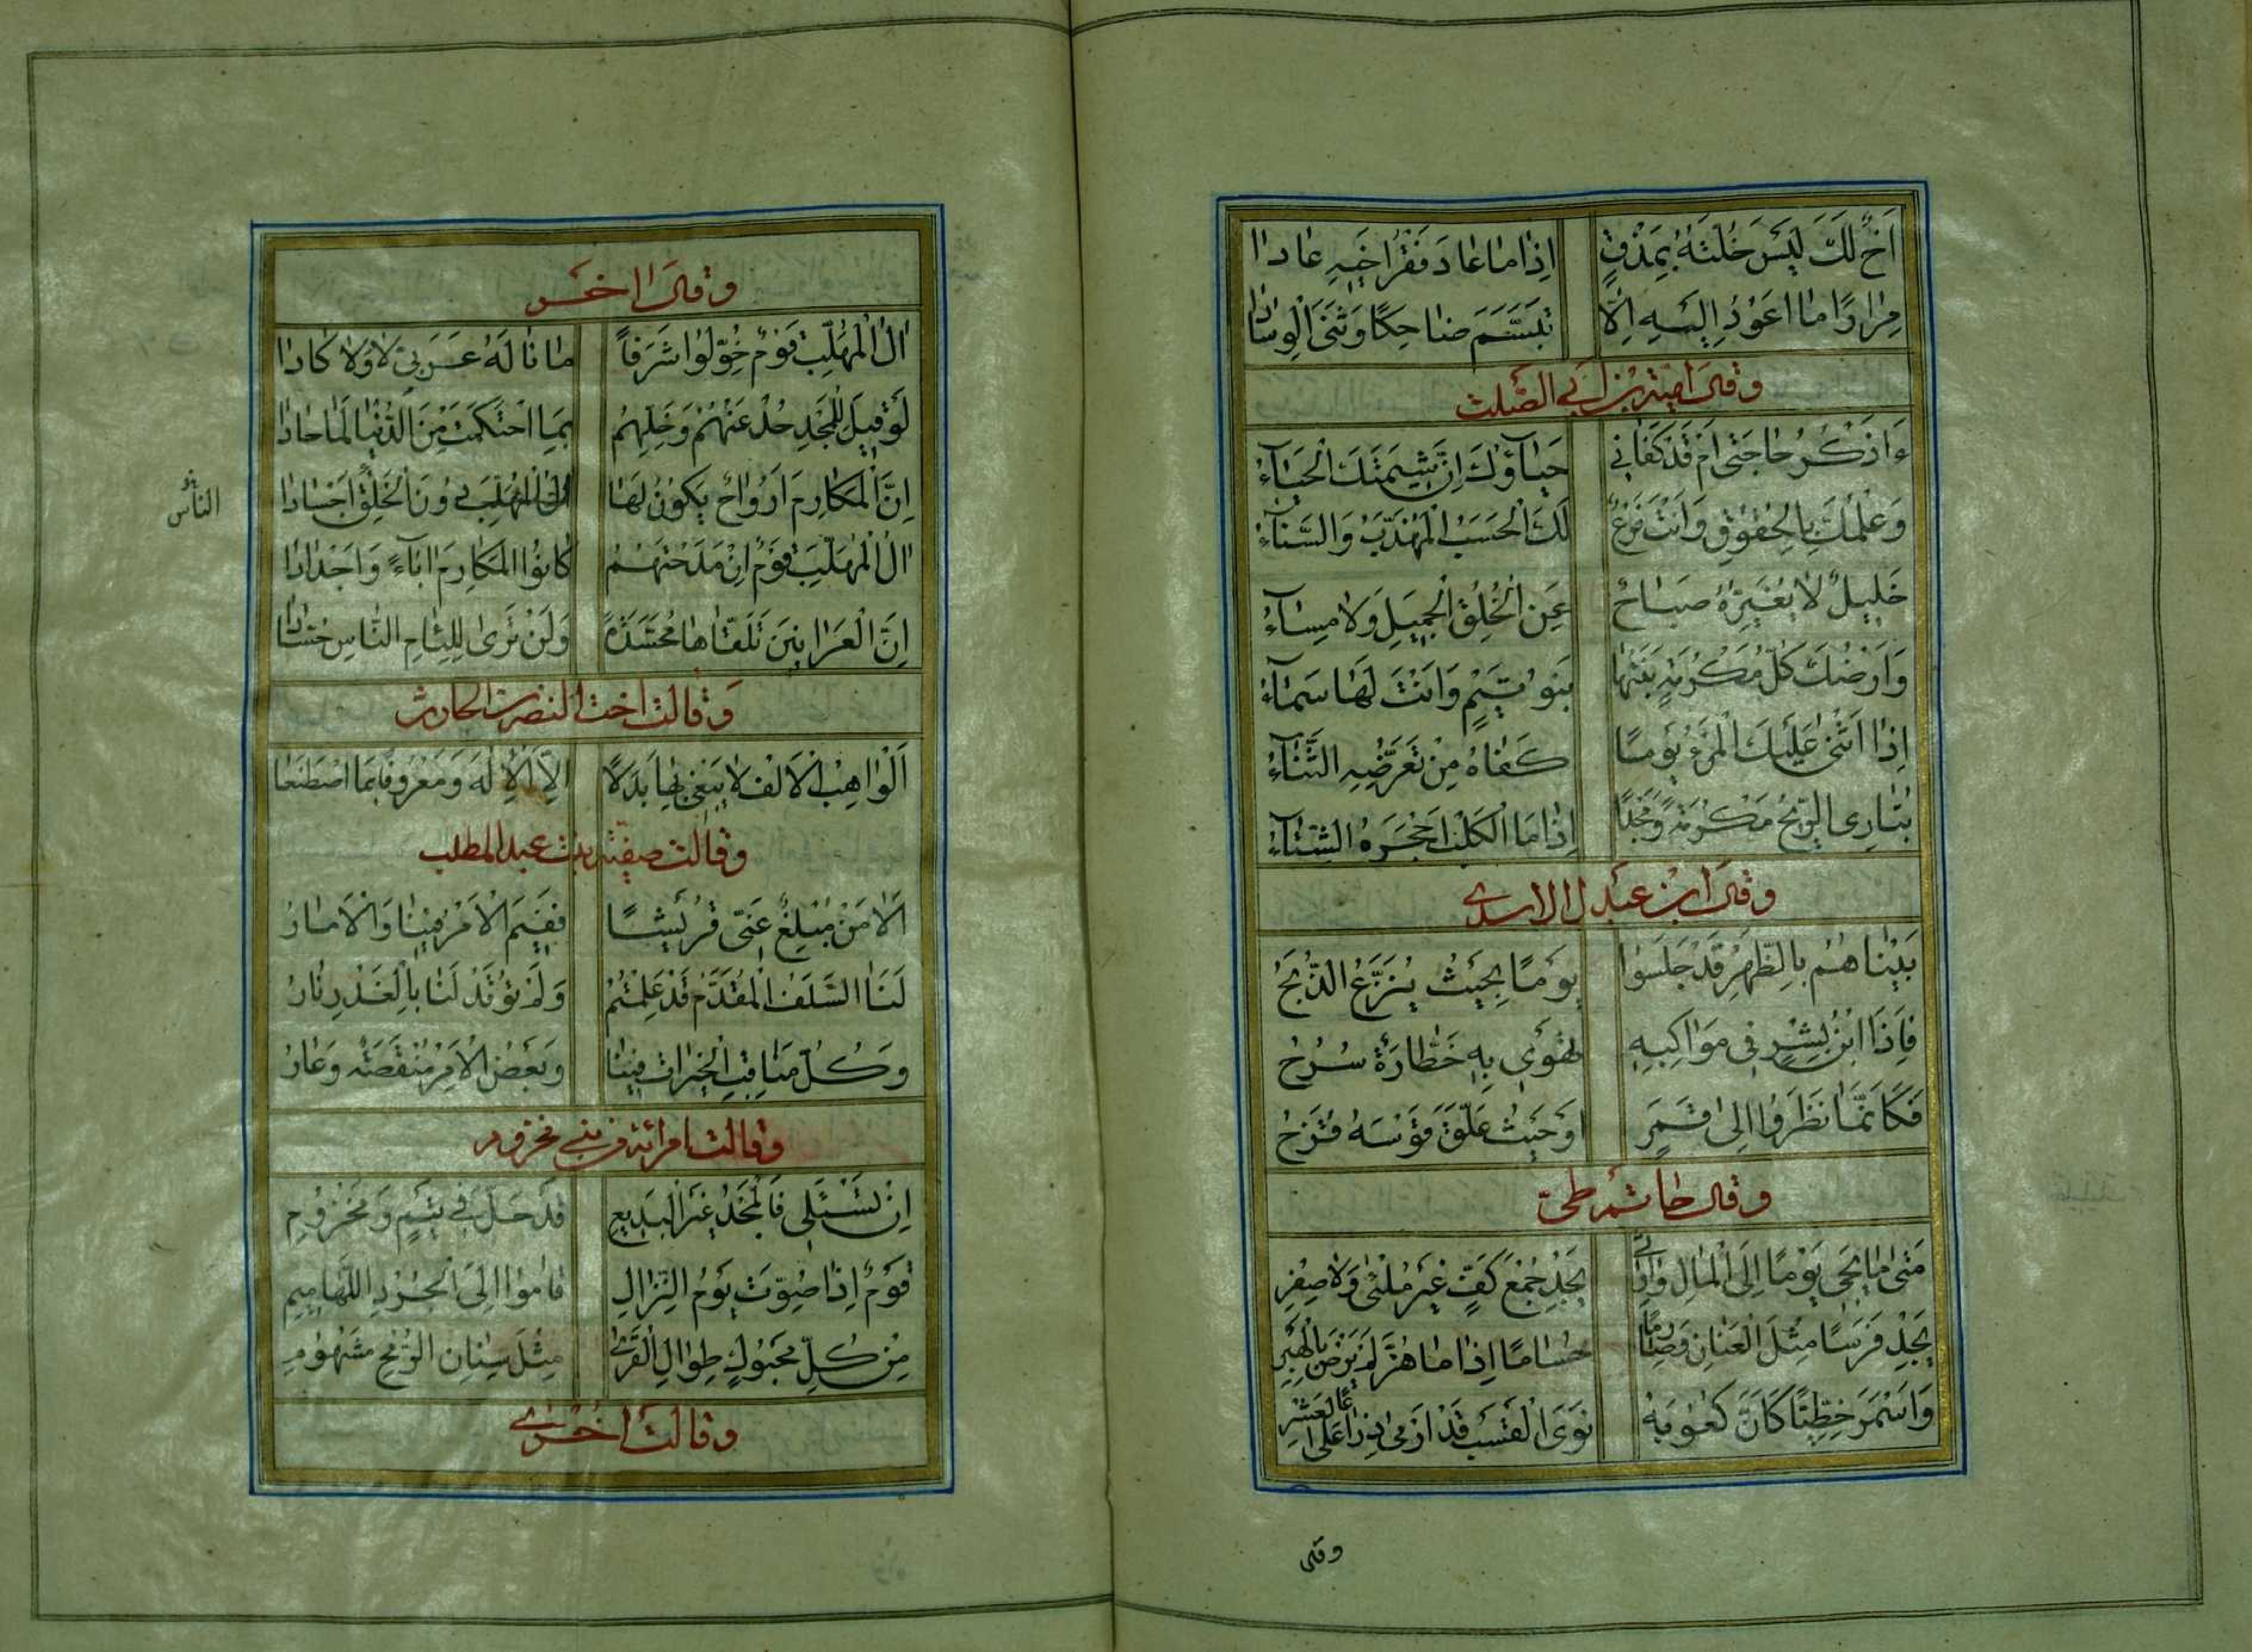 اَخٌ لَكَ لَيْسَ خُلَّتُهُ بِمَذْقٍ اِذَا مَا عَادَ فَقْرُ اَخِيهِ عَادَا
مِرَارًا مَا اَعُودُ اِلَيْهِ اِلَّا تَبَسَّمَ ضَاحِكًا وَثَنَى الْوِسَادَا
وقال امية بن ابي الصلت
ءَاَذْكُرُ حَاجَتِى اَمْ قَدْ كَفَانِي حَيَاؤُكَ اِنَّ شِيمَتَكَ الْحَيَاءُ
وَعِلْمُكَ بِالْحُقُوقِ وَاَنْتَ فَرْعٌ لَكَ الْحَسَبُ الْمُهَذَّبُ وَالسَّنَاءُ
خَلِيلٌ لَا يُغَيِّرُهُ صَبَاحٌ عَنِ الْخُلُقِ الْجَمِيلِ وَلَا مَسَاءُ
وَاَرْضُكَ كُلُّ مَكْرُمَةٍ بَنَتْهَا بَنُو تَيْمٍ وَاَنْتَ لَهَا سَمَاءُ
اِذَا اَثْنَى عَلَيْكَ الْمَرْءُ يَوْمًا كَفَاهُ مِنْ تَعَرُّضِهِ الثَّنَاءُ
تُبَارِي الرِّيحَ مَكْرُمَةً وَمَجْدًا اِذَا مَا الْكَلْبُ اَجْحَرَهُ الشِّتَاءُ
وقال ابن عبدل الاسدي
بَيْنَا هُمُ بِالظَّهْرِ قَدْ جَلَسُوا يَوْمًا بِحَيْثُ يُنَزَّعُ الذُّبَحُ
فَاِذَا ابْنُ بِشْرٍ فِي مَوَاكِبِهِ تَهْوِي بِهِ خَطَّارَةٌ سُرُحُ
فَكَاَنَّمَا نَظَرُوا اِلَى قَمَرٍ اَوْ حَيْثُ عَلَّقَ قَوْسَهُ قُزَحُ
وقال حاتم طي
مَتَى مَا يَجِئْ يَوْمًا اِلَى الْمَالِ وَارِثِي يَجِدْ جُمْعَ كَفٍّ غَيْرَ مَلْئَى وَلَا صِفْرِ
يَجِدْ فَرَسًا مِثْلَ الْعِنَانِ وَصَارِمًا حُسَامًا اِذَا مَا هُزَّ لَمْ يَرْضَ بِالْهَبْرِ
وَاَسْمَرَ خَطِّيًّا كَاَنَّ كُعُوبَهُ نَوَى الْقَسْبِ قَدْ اَرْمَى ذِرَاعًا عَلَى الْعَشْرِ
وقال اخر
اٰلُ الْمُهَلَّبِ قَوْمٌ خُوِّلُوا شَرَفًا مَا نَالَهُ عَرَبِيٌّ لَا وَلَا كَادَا
لَوْ قِيلَ لِلْمَجْدِ حُدْ عَنْهُمْ وَخَلِّهِمُ بِمَا احْتَكَمْتَ مِنَ الدُّنْيَا لَمَا حَادَا
اِنَّ الْمَكَارِمَ اَرْوَاحٌ يَكُونُ لَهَا اٰلُ الْمُهَلَّبِ دُونَ الْخَلْقِ اَجْسَادَا
الناس
اٰلُ الْمُهَلَّبِ قَوْمٌ اِنْ مَدَحْتَهُمُ كَانُوا الْمَكَارِمَ اٰبَاءً وَاَجْدَادَا
اِنَّ الْعَرَانِينَ تَلْقَاهَا مُحَسَّدَةً وَلَنْ تَرَى لِلِئَامِ النَّاسِ حُسَّادَا
وقالت اخت النضر بن الحارث
اَلْوَاهِبُ الْاَلْفَ لَا يَبْغِي بِهَا بَدَلًا اِلَّا الْاِلٰهَ وَمَعْرُوفًا بِمَا اصْطَنَعَا
وقالت صفية بنت عبد المطلب
اَلَا مَنْ مُبْلِغٌ عَنِّي قُرَيْشًا فَفِيمَ الْاَمْرُ فِينَا وَالْاِمَارُ
لَنَا السَّلَفُ الْمُقَدَّمُ قَدْ عَلِمْتُمْ وَلَمْ تُوقَدْ لَنَا بِالْغَدْرِ نَارُ
وَكُلُّ مَنَاقِبِ الْخَيْرَاتِ فِينَا وَبَعْضُ الْاَمْرِ مَنْقَصَةٌ وَعَارُ
وقالت امرائة من بني مخزوم
اِنْ تَسْئَلِى فَالْمَجْدُ غَيْرُ الْبَدِيعِ قَدْ حَلَّ فِي تَيْمٍ وَمَخْزُومِ
قَوْمٌ اِذَا صُوِّتَ يَوْمَ النِّزَالِ قَامُوا اِلَى الْجُرْدِ اللَّهَامِيمِ
مِنْ كُلِّ مَحْبُوكٍ طِوَالِ الْقَرَى مِثْلِ سِنَانِ الرُّمْحِ مَشْهُومِ
وقالت اخرى